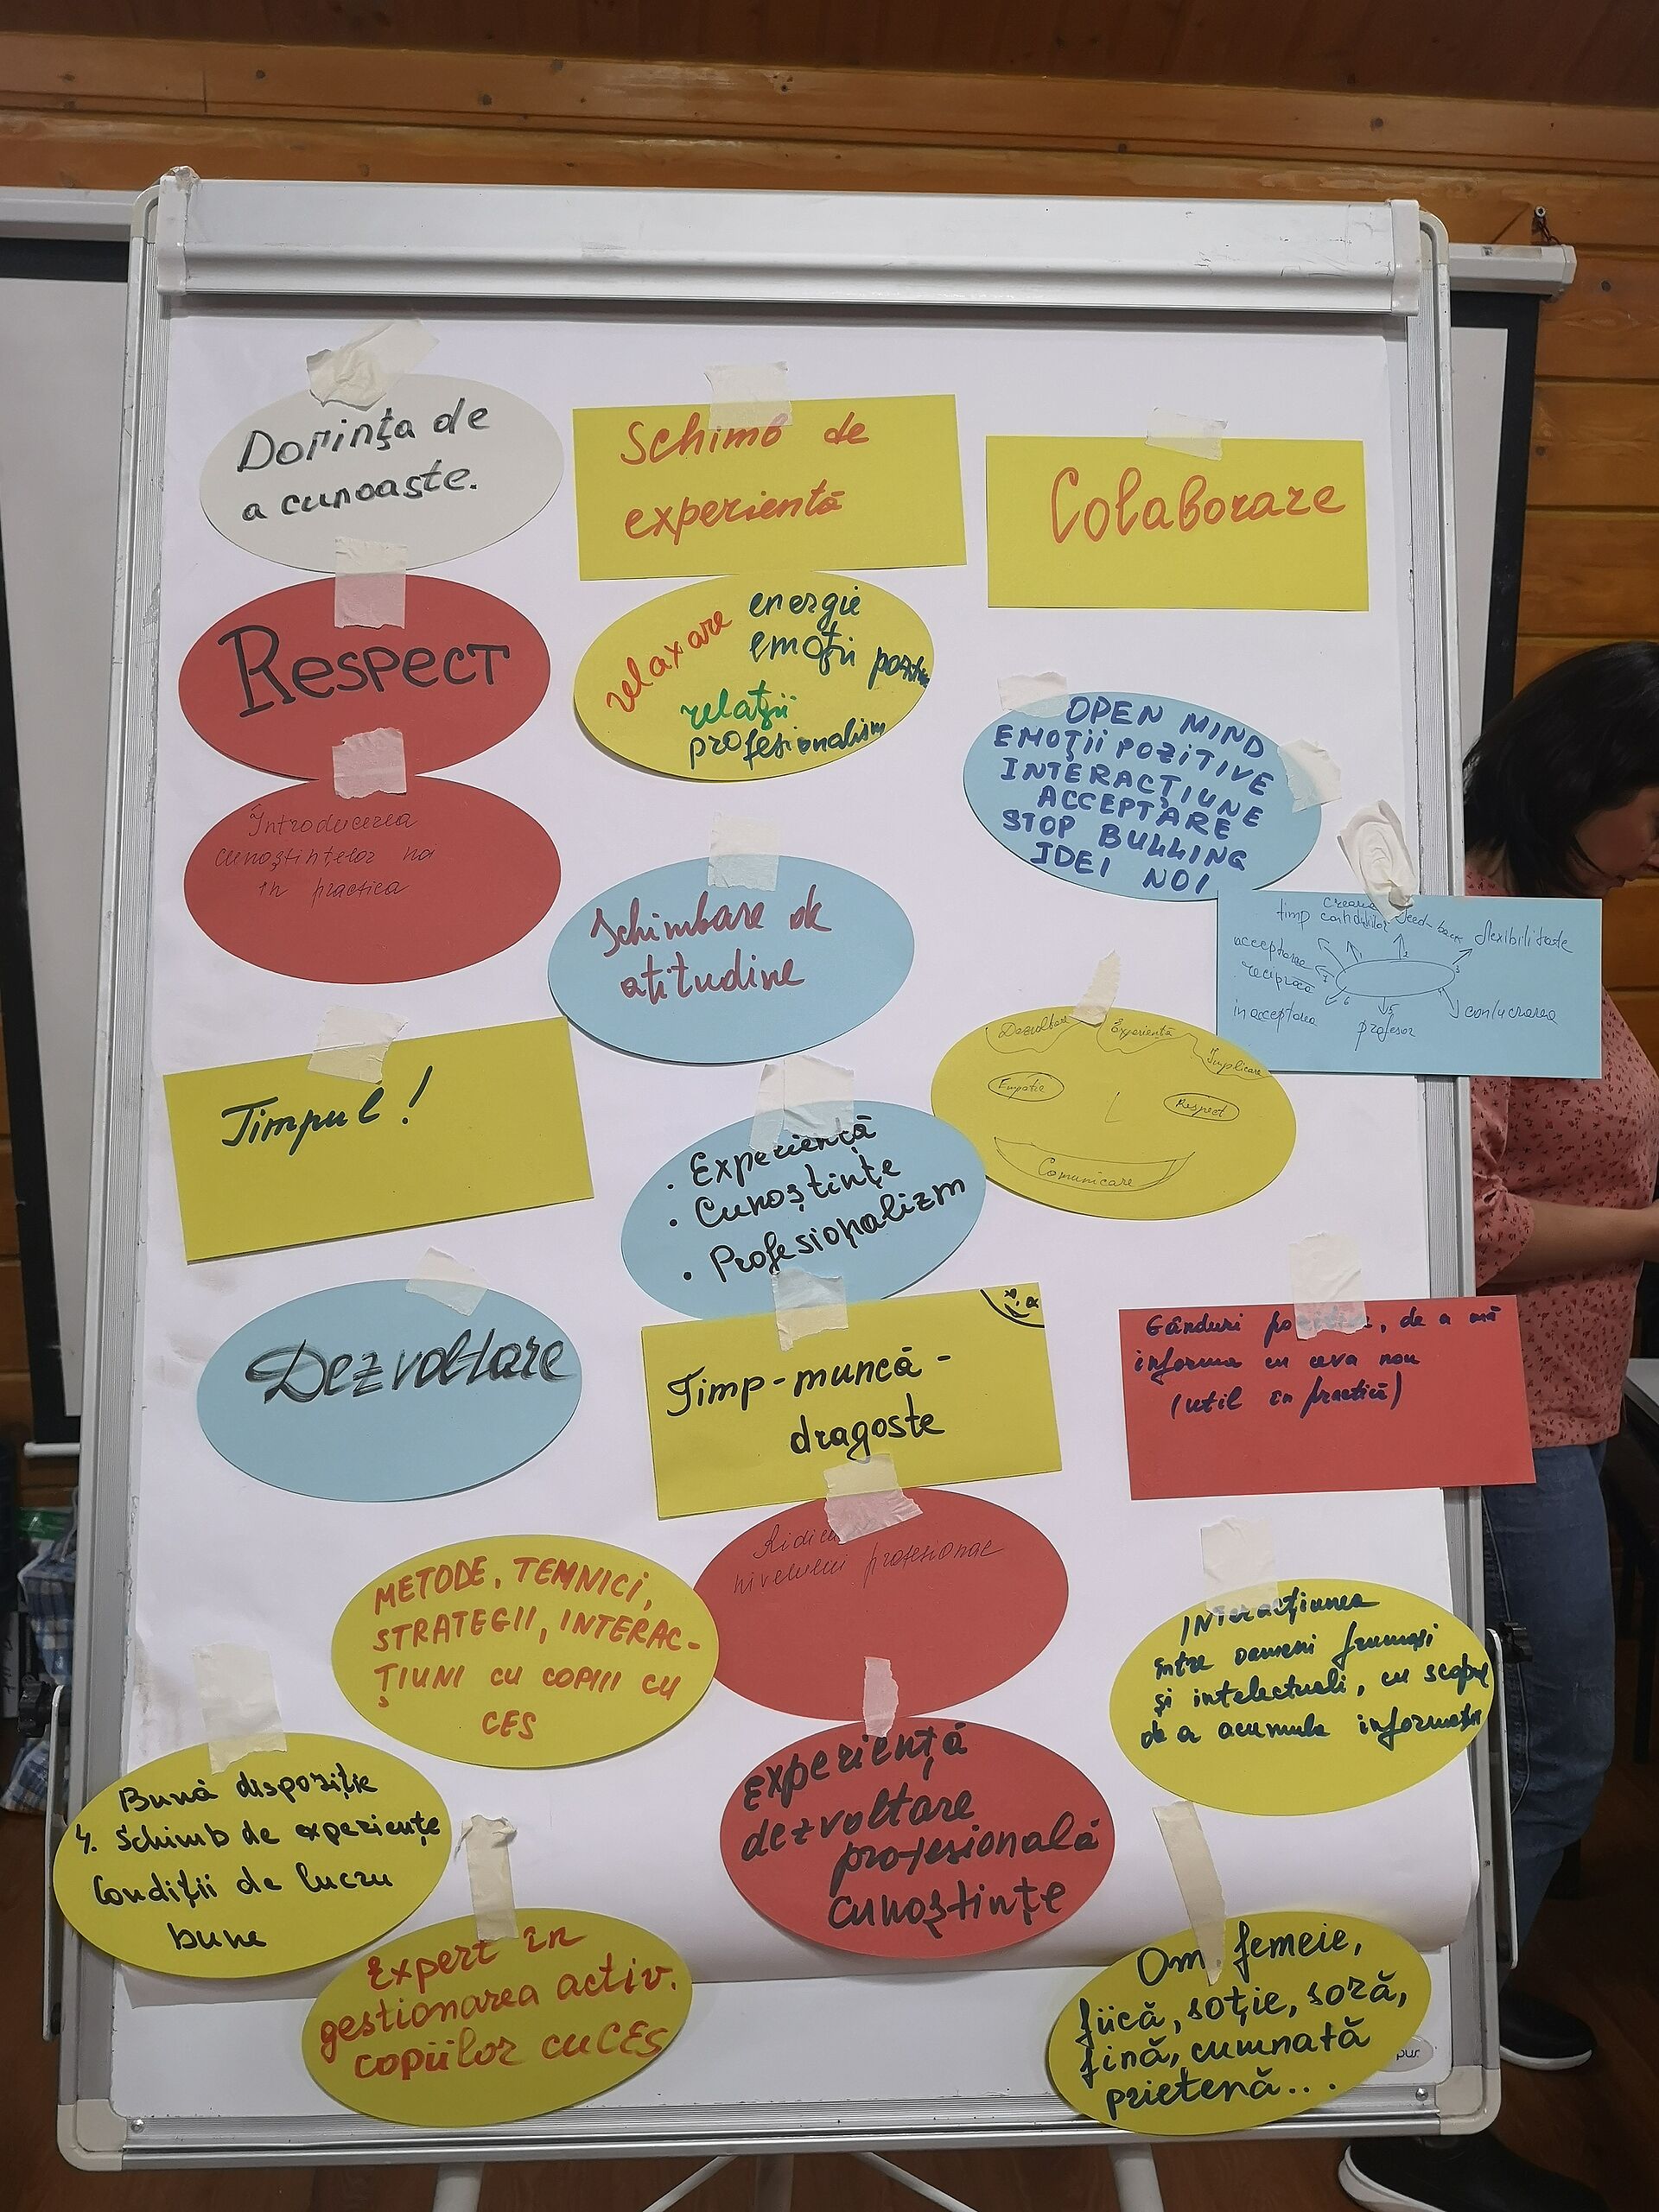 Dorința de
a cunoaște.
Schimb de
experientă
Colaborare
Respect
relaxare
energie
emoții
relații
profesionalism
OPEN MIND
EMOȚII POZITIVE
INTERACȚIUNE
ACCEPTARE
STOP BULLING
IDEI NOI
Introducerea
cunoștințelor
în practica
Schimbare de
atitudine
timp
feed-back
flexibilitate
acceptarea
reciprocă
inacceptarea
profesor
conlucrarea
1
2
3
5
6
7
Timpul!
Dezvoltare
Experiență
Implicare
Empatie
Respect
Comunicare
• Experiență
• Cunoștințe
• Profesionalizm
Dezvoltare
Timp-muncă-
dragoste
Gânduri , de a mă
informa cu ceva nou
(util în practică)
METODE, TEMNICI,
STRATEGII, INTERAC-
ȚIUNI CU COPIII CU
CES
nivelului profesional
INteracțiunea
între oameni frumoși
și intelectuali, cu scopul
de a acumula
Bună dispoziție
Schimb de experiențe
Condiții de lucru
bune
experiență
dezvoltare
profesională
cunoștințe
Expert în
gestionarea activ.
copiilor cu CES
Om, femeie,
fiică, soție, soră,
fină, cumnată
prietenă...